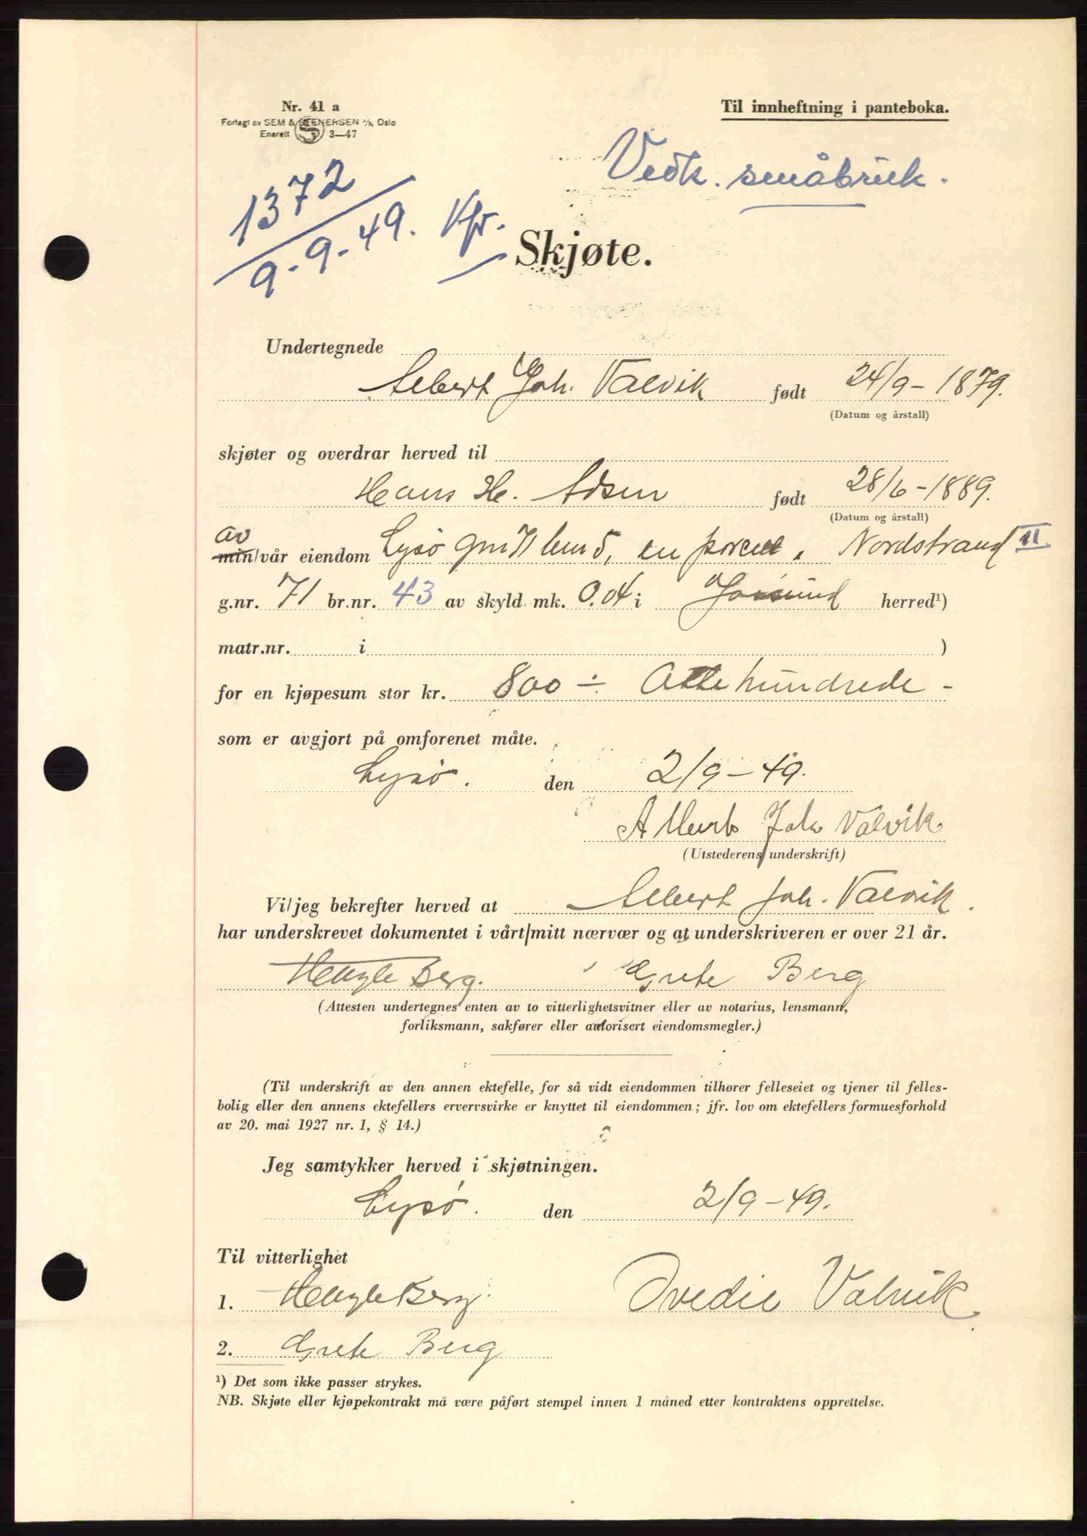 Nr. 41 a
Forlagt av SEM & STENERSEN A/S, Oslo
Enerett 3—47
Til innheftning i panteboka.
Vedk. småbruk.
1372
9-9-49.
Skjøte.
Undertegnede
Albert Joh. Valvik født 24/9-1879.
(Datum og årstall)
skjøter og overdrar herved til
Hans H. født 28/6-1889.
(Datum og årstall)
av
min/vår eiendom Lysø en parcel, Nordstrand II
g.nr. 71 br.nr. 43 av skyld mk. 0.04 i Jøssund herred¹)
matr.nr. i )
for en kjøpesum stor kr. 800 ÷ Åtte hundrede -
som er avgjort på omforenet måte.
Lysø. den 2/9-49.
Albert Joh Valvik
(Utstederens underskrift)
Vi/jeg bekrefter herved at Albert Joh. Valvik.
har underskrevet dokumentet i vårt/mitt nærvær og at underskriveren er over 21 år.
Berg. Grete Berg
(Attesten undertegnes enten av to vitterlighetsvitner eller av notarius, lensmann,
forliksmann, sakfører eller autorisert eiendomsmegler.)
(Til underskrift av den annen ektefelle, for så vidt eiendommen tilhører felleseiet og tjener til felles-
bolig eller den annens ektefellers ervervsvirke er knyttet til eiendommen; jfr. lov om ektefellers formuesforhold
av 20. mai 1927 nr. 1, § 14.)
Jeg samtykker herved i skjøtningen.
Lysø. den 2/9-49.
Til vitterlighet
1. Berg. Ovedie Valvik.
2. Grete Berg
¹) Det som ikke passer strykes.
NB. Skjøte eller kjøpekontrakt må være påført stempel innen 1 måned etter kontraktens opprettelse.